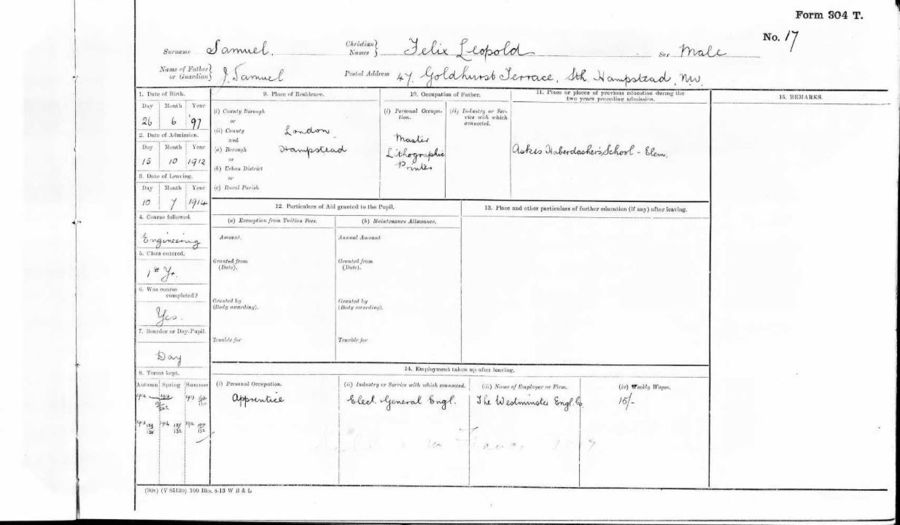 Form 304 T.
No. 17
Surname Samuel. Christian Names } Felix Leopold Sex Male
Name of Father or Guardian } J. Samuel Postal Address 47, Goldhurst Terrace, Sth Hampstead, NW.
1. Date of Birth.
Day Month Year
26 6 '97
2. Date of Admission.
Day Month Year
15 10 1912
3. Date of Leaving.
Day Month Year
10 7 1914
4. Course followed.
Engineering
5. Class entered.
1st Yr.
6. Was course completed?
Yes.
7. Boarder or Day-Pupil.
Day
8. Terms kept.
Autumn Spring Summer
9. Place of Residence.
(i) County Borough
or
(ii) County London
and
(a) Borough Hampstead
or
(b) Urban District
or
(c) Rural Parish
10. Occupation of Father.
(i) Personal Occupation.
Master
Lithographic
Printer
(ii) Industry or Service with which connected.
11. Place or places of previous education during the
two years preceding admission.
Askes Haberdashers School - Elem.
15. REMARKS.
12. Particulars of Aid granted to the Pupil.
(a) Exemption from Tuition Fees.
Amount.
Granted from
(Date).
Granted by
(Body awarding).
Tenable for
(b) Maintenance Allowance.
Annual Amount
Granted from
(Date).
Granted by
(Body awarding).
Tenable for
13. Place and other particulars of further education (if any) after leaving.
14. Employment taken up after leaving.
(i) Personal Occupation.
Apprentice
(ii) Industry or Service with which connected.
Elect. & General Engl.
(iii) Name of Employer or Firm.
The Westminster Engl. Co
(iv) Weekly Wages.
15/-